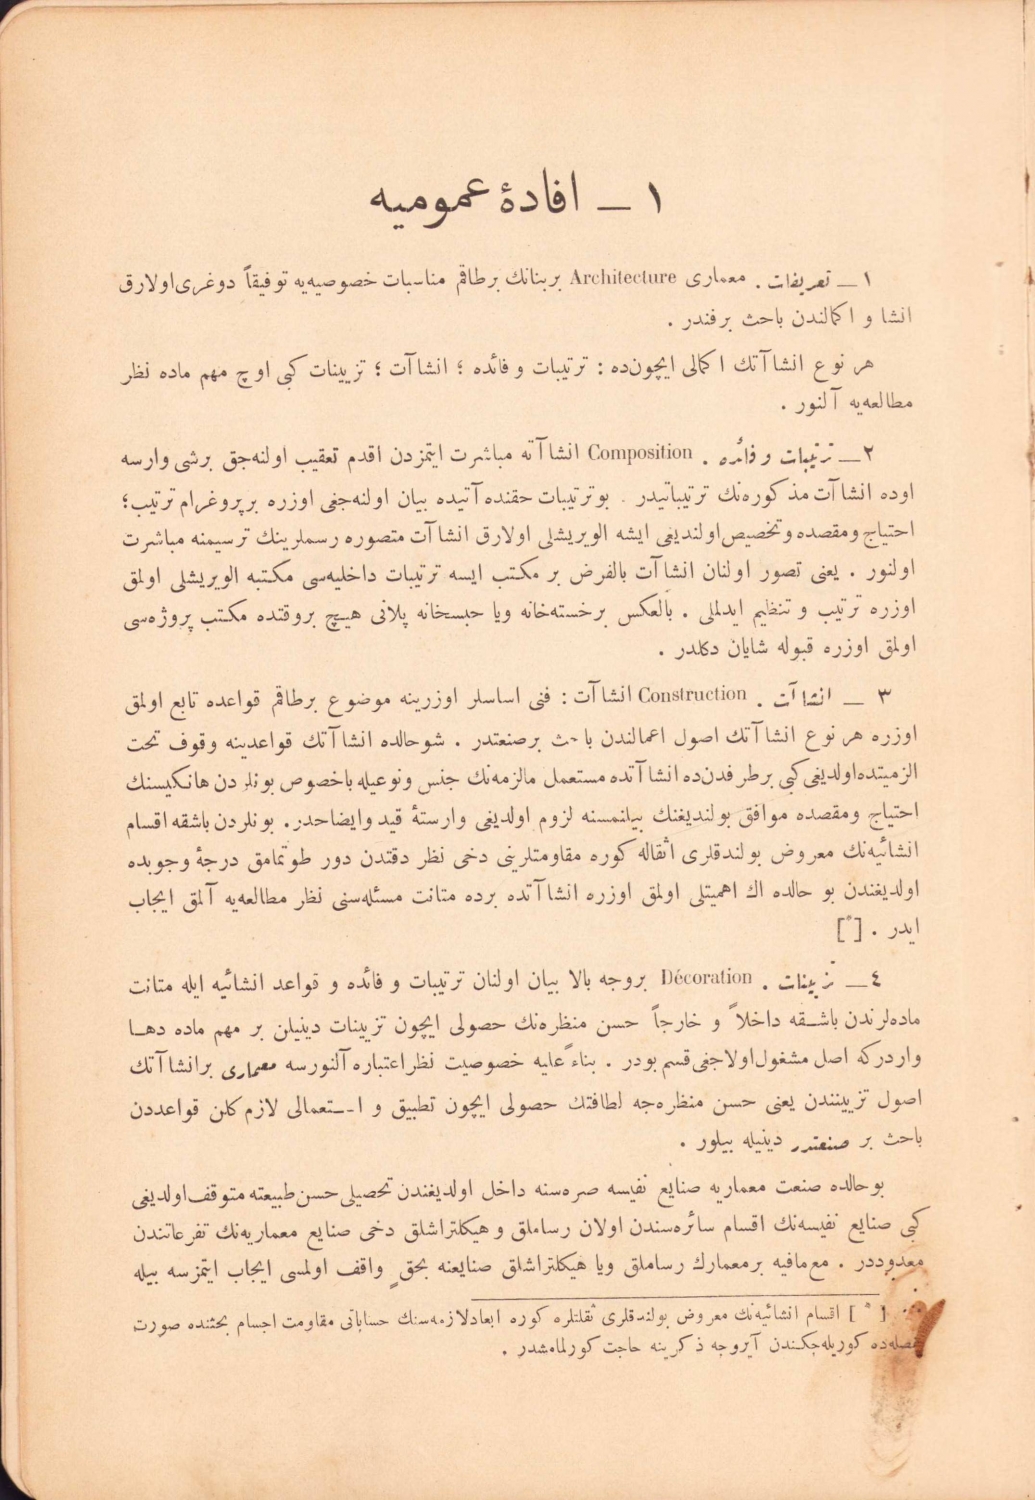 ١ — افادهٔ عموميه
١ — تعريفات . معماری Architecture بربنانك برطاقم مناسبات خصوصيه‌يه توفيقاً دوغری‌اولارق
انشا و اكمالندن باحث برفندر .
هر نوع انشاآتك اكمالی ايچون‌ده : ترتيبات و فائده ؛ انشاآت ؛ تزيينات كبی اوچ مهم ماده نظر
مطالعه‌يه آلنور .
٢ — ترتيبات و فائده . Composition انشاآته مباشرت ايتمزدن اقدم تعقيب اولنه‌جق برشی وارسه
اوده انشاآت مذكوره‌نك ترتيباتيدر . بوترتيبات حقنده آتيده بيان اولنه‌جغی اوزره برپروغرام ترتيب ؛
احتياج ومقصده وتخصيص‌اولنديغی ايشه الويريشلی اولارق انشاآت متصوره رسملرينك ترسيمنه مباشرت
اولنور . يعنی تصور اولنان انشاآت بالفرض بر مكتب ايسه ترتيبات داخليه‌سی مكتبه الويريشلی اولمق
اوزره ترتيب و تنظيم ايدلملی . بالعكس برخسته‌خانه ويا حبسخانه پلانی هيچ بروقتده مكتب پروژه‌سی
اولمق اوزره قبوله شايان دكلدر .
٣ — انشاآت . Construction انشاآت : فنی اساسلر اوزرينه موضوع برطاقم قواعده تابع اولمق
اوزره هر نوع انشاآتك اصول اعمالندن باحث برصنعتدر . شوحالده انشاآتك قواعدينه وقوف تحت
الزميتده‌اولديغی كبی برطرفدن‌ده انشاآتده مستعمل مالزمه‌نك جنس ونوعيله باخصوص بونلردن هانكيسنك
احتياج ومقصده موافق بولنديغنك بيلنمسنه لزوم اولديغی وارستهٔ قيد وايضاحدر. بونلردن باشقه اقسام
انشائيه‌نك معروض بولندقلری اثقاله كوره مقاومتلرينی دخی نظر دقتدن دور طوتمامق درجهٔ وجوبده
اولديغندن بو حالده اك اهميتلی اولمق اوزره انشاآتده برده متانت مسئله‌سنی نظر مطالعه‌يه آلمق ايجاب
ايدر . [*]
٤ — تزيينات . Décoration بروجه بالا بيان اولنان ترتيبات و فائده و قواعد انشائيه ايله متانت
ماده‌لرندن باشقه داخلاً و خارجاً حسن منظره‌نك حصولی ايچون تزيينات دينيلن بر مهم ماده دها
واردركه اصل مشغول‌اولاجغی‌قسم بودر . بناءً عليه خصوصيت نظراعتباره آلنورسه معماری برانشاآتك
اصول تزييتندن يعنی حسن منظره‌جه لطافتك حصولی ايچون تطبيق و استعمالی لازم كلن قواعددن
باحث بر صنعتدر دينيله بيلور .
بوحالده صنعت معماريه صنايع نفيسه صره‌سنه داخل اولديغندن تحصيلی حسن طبيعته متوقف‌اولديغی
كبی صنايع نفيسه‌نك اقسام سائره‌سندن اولان رساملق و هيكلتراشلق دخی صنايع معماريه‌نك تفرعاتندن
معدوددر . مع‌مافيه برمعمارك رساملق ويا هيكلتراشلق صنايعنه بحقٍ واقف اولمسی ايجاب ايتمزسه بيله
[*] اقسام انشائيه‌نك معروض بولندقلری ثقلتلره كوره ابعادلازمه‌سنك حساباتی مقاومت اجسام بحثنده صورت
مفصله‌ده كوريله‌جكندن آيروجه ذكرينه حاجت كورلمامشدر .